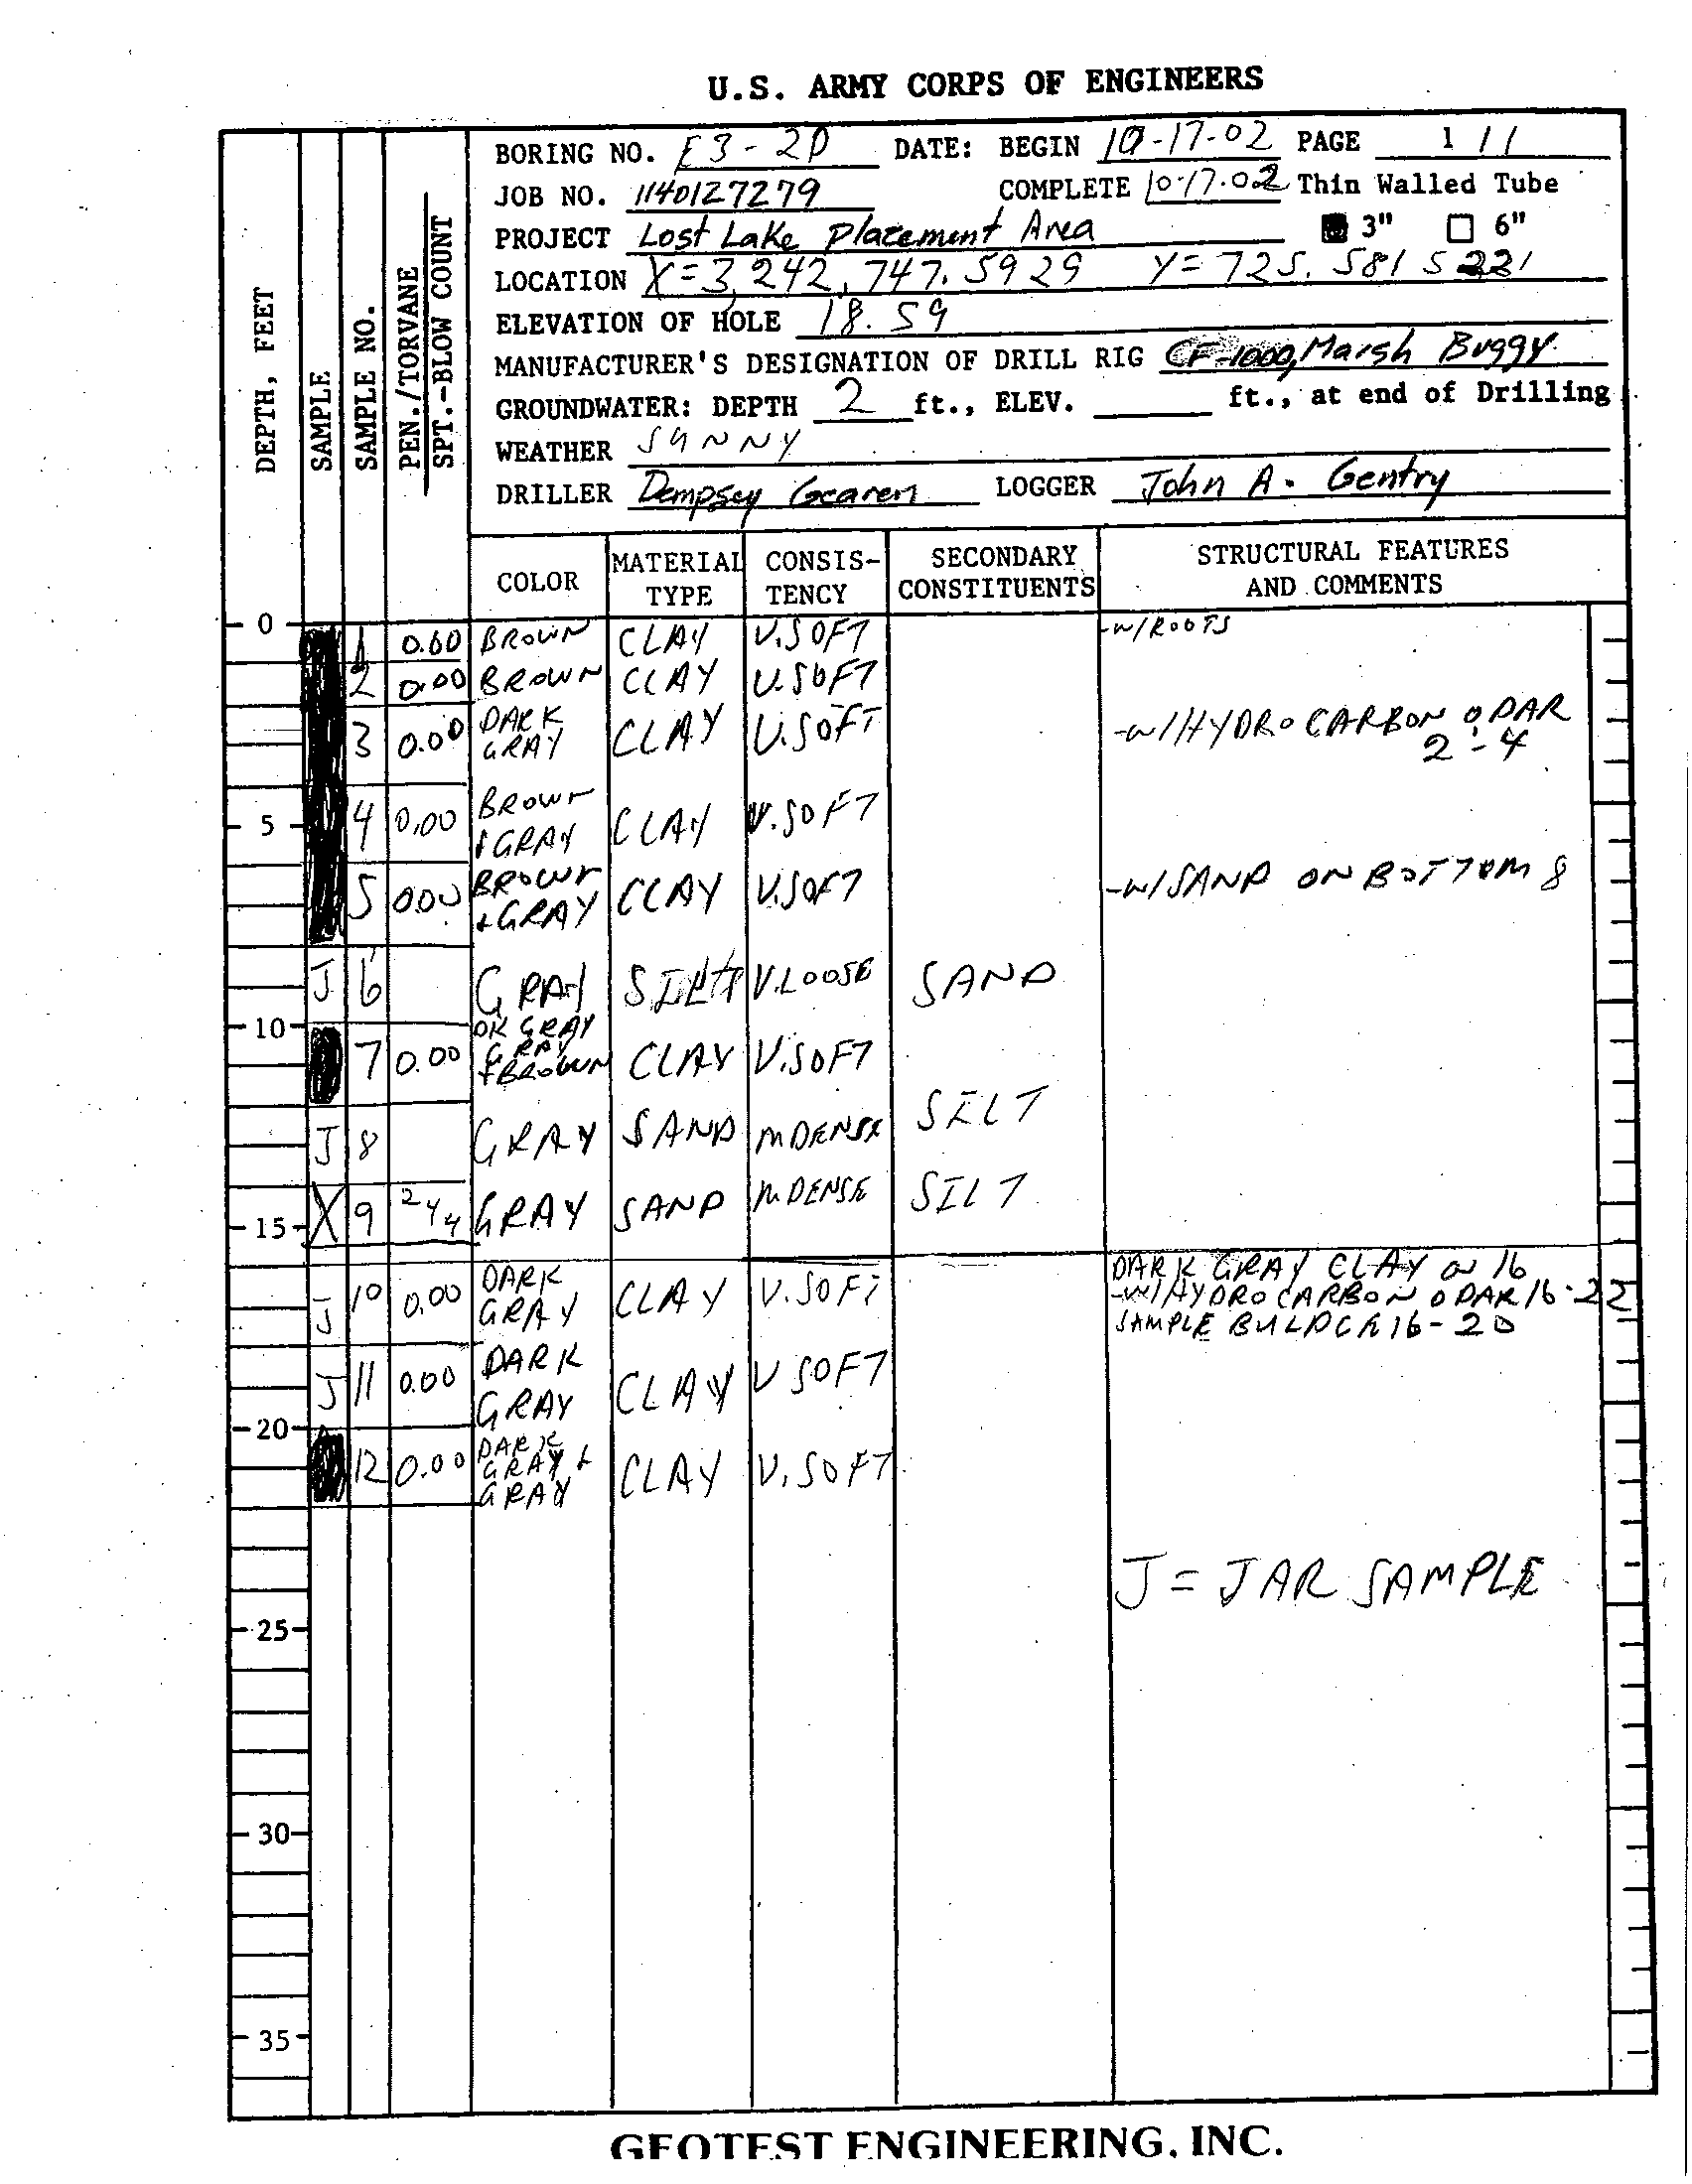 U.S. ARMY CORPS OF ENGINEERS
BORING NO. E3-2P DATE: BEGIN 10-17-02 PAGE 1 / 1
JOB NO. 1140127279 COMPLETE 10-17-02 Thin Walled Tube
PROJECT Lost Lake Placement Area 3" 6"
LOCATION X=3,242,747.5929 Y=725,581.5221
ELEVATION OF HOLE 18.59
MANUFACTURER'S DESIGNATION OF DRILL RIG CF-1000, Marsh Buggy
GROUNDWATER: DEPTH 2 ft., ELEV. ft., at end of Drilling
WEATHER SUNNY
DRILLER Dempsey Gearen LOGGER John A. Gentry
DEPTH, FEET
SAMPLE
SAMPLE NO.
PEN./TORVANE
SPT.-BLOW COUNT
COLOR MATERIAL TYPE CONSIS-TENCY SECONDARY CONSTITUENTS STRUCTURAL FEATURES AND COMMENTS
0
1 0.00 BROWN CLAY V.SOFT -W/ROOTS
2 0.00 BROWN CLAY V.SOFT
3 0.00 DARK GRAY CLAY V.SOFT -W/HYDROCARBON ODAR 2'-4
5
4 0.00 BROWN & GRAY CLAY V.SOFT
5 0.00 BROWN + GRAY CLAY V.SOFT -W/SAND ON BOTTOM 8
J 6 GRAY SILT V.LOOSE SAND
10
7 0.00 DK GRAY GRAY + BROWN CLAY V.SOFT
J 8 GRAY SAND M DENSE SILT
15
X 9 2/4/4 GRAY SAND M DENSE SILT
J 10 0.00 DARK GRAY CLAY V.SOFT DARK GRAY CLAY @ 16
-W/HYDROCARBON ODAR 16-22
SAMPLE 16-20
J 11 0.00 DARK GRAY CLAY V SOFT
20
12 0.00 DARK GRAY & GRAY CLAY V.SOFT
J = JAR SAMPLE
25
30
35
GEOTEST ENGINEERING, INC.